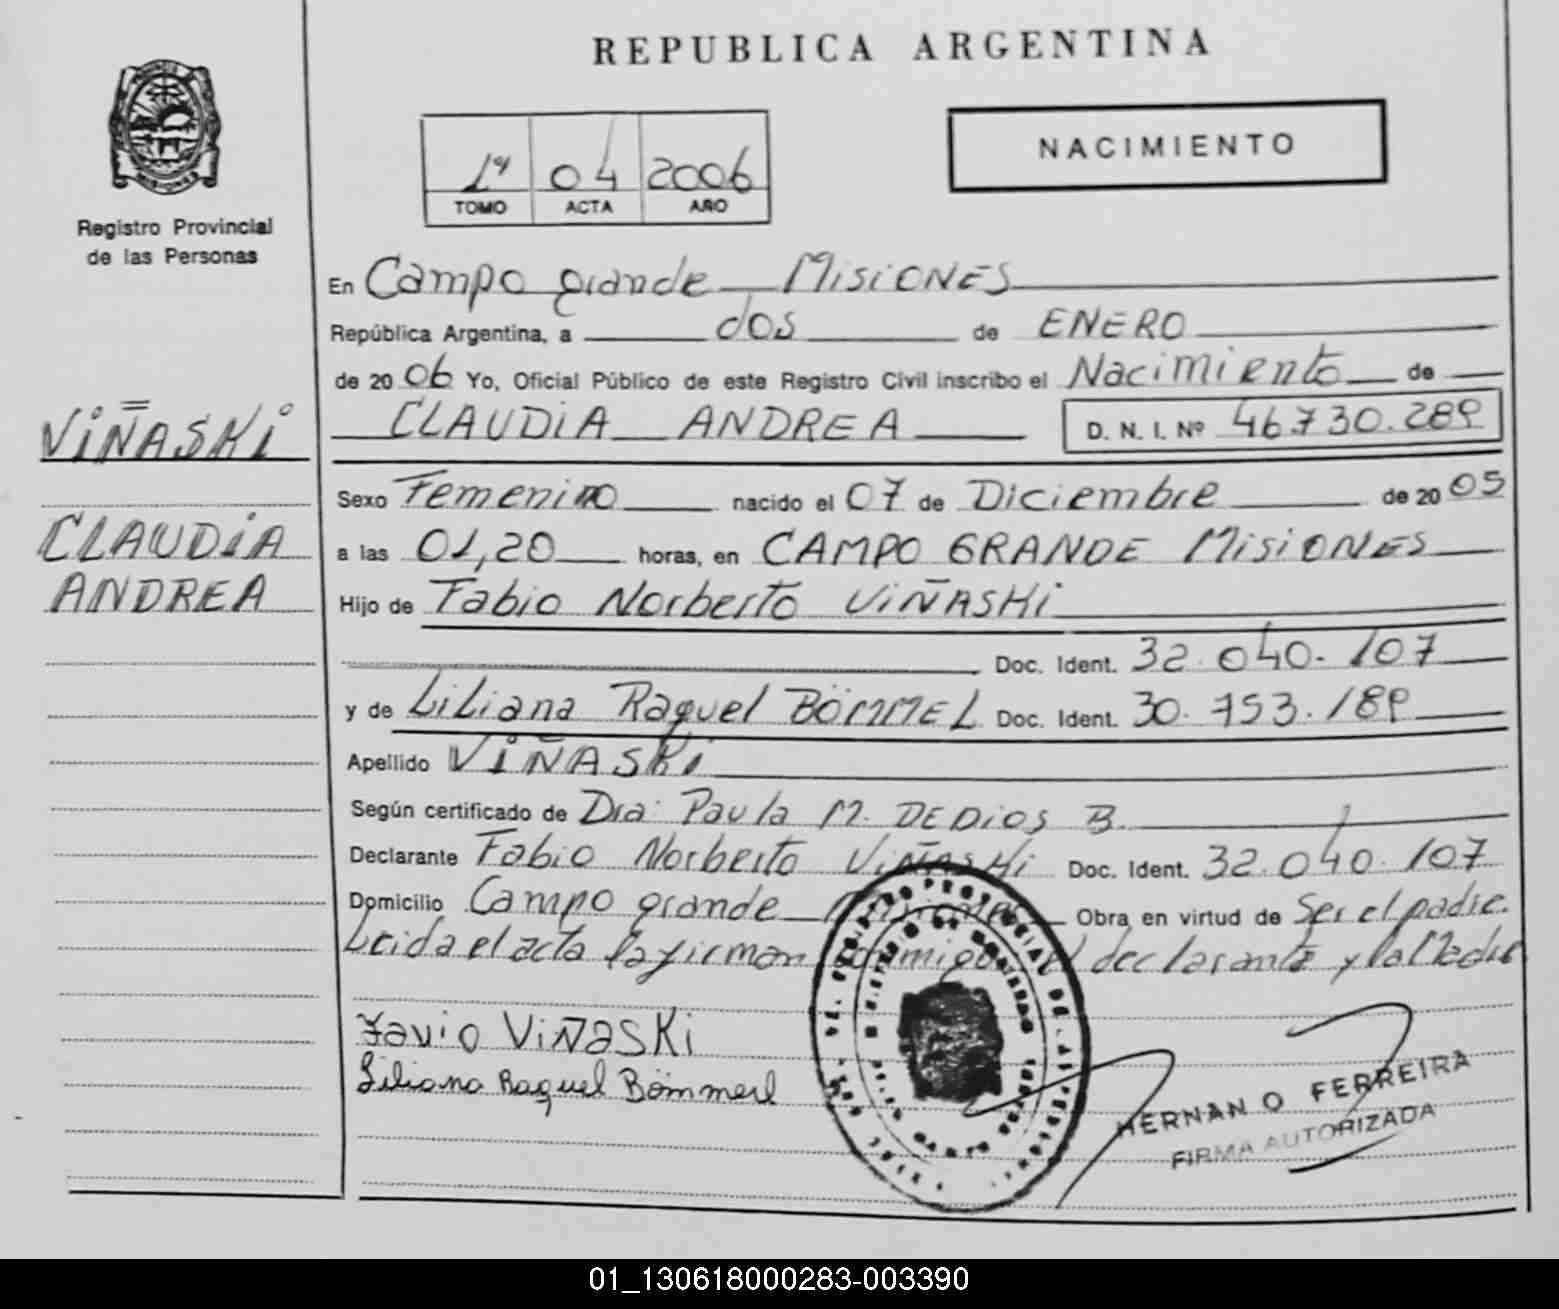 REPUBLICA ARGENTINA
PROVINCIA DE
MISIONES
Registro Provincial
de las Personas
1º 04 2006
TOMO ACTA AÑO
NACIMIENTO
VIÑASKI
CLAUDIA
ANDREA
En Campo grande Misiones
República Argentina, a dos de ENERO
de 2006 Yo, Oficial Público de este Registro Civil inscribo el Nacimiento de
CLAUDIA ANDREA D. N. I. Nº 46.730.289
Sexo Femenino nacido el 07 de Diciembre de 2005
a las 01,20 horas, en CAMPO GRANDE Misiones
Hijo de Fabio Norberto VIÑASKI
Doc. Ident. 32.040.107
y de Liliana Raquel BÖMMEL Doc. Ident. 30.753.189
Apellido VIÑASKI
Según certificado de Dra: Paula M. DEDIOS B.
Declarante Fabio Norberto VIÑASKI Doc. Ident. 32.040.107
Domicilio Campo grande Misiones Obra en virtud de Ser el padre.
Leida el acta la firman conmigo el declarante y la Madre
Favio VIÑASKI
Liliana Raquel Bömmel
HERNAN O FERREIRA
FIRMA AUTORIZADA
01_130618000283-003390